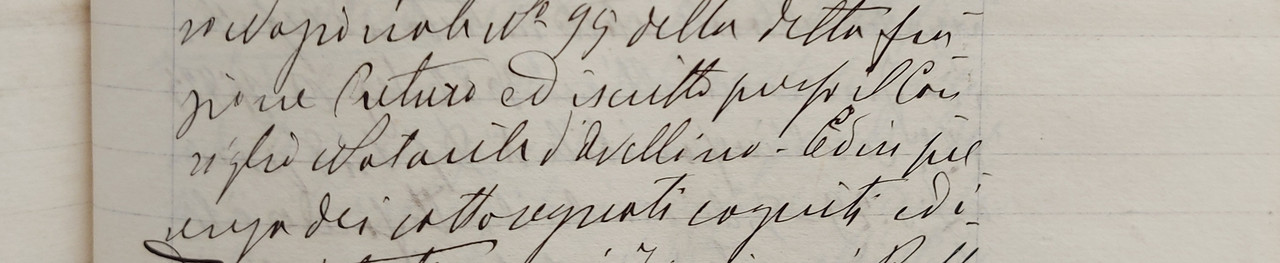 No 95 della detta fra
zione Preturo ed iscritto presso il Con
siglio Notarile d'Avellino - Ed in pre
senza dei sottosegnati cogniti ed i